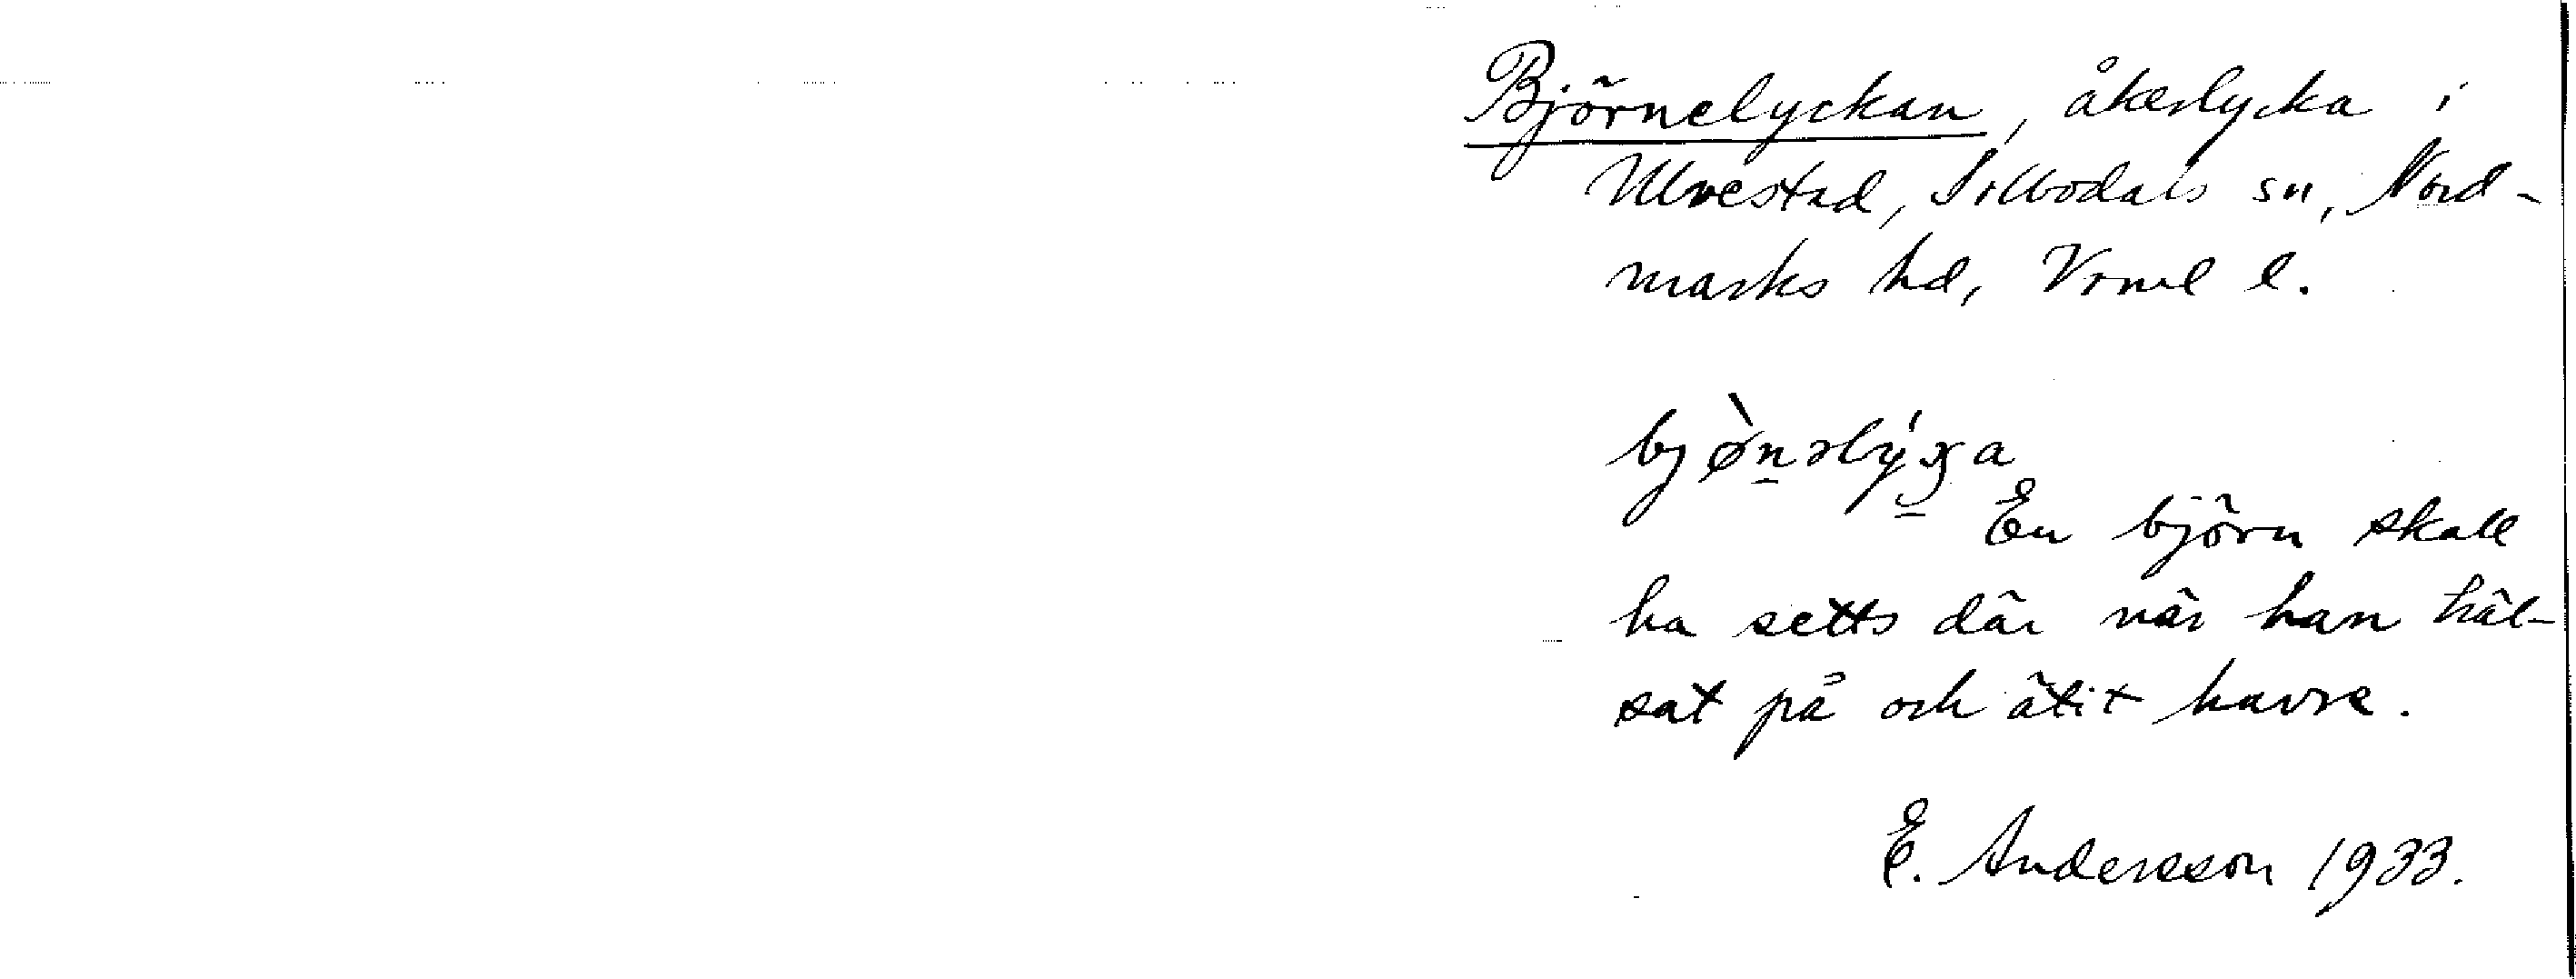 Björnelyckan, åkerlycka i
Ulvestad, Silbodals sn, Nord-
marks hd, Vrml l.
En björn skall
ha setts där när han häl-
sat på och ätit havre.
E. Andersson 1933.